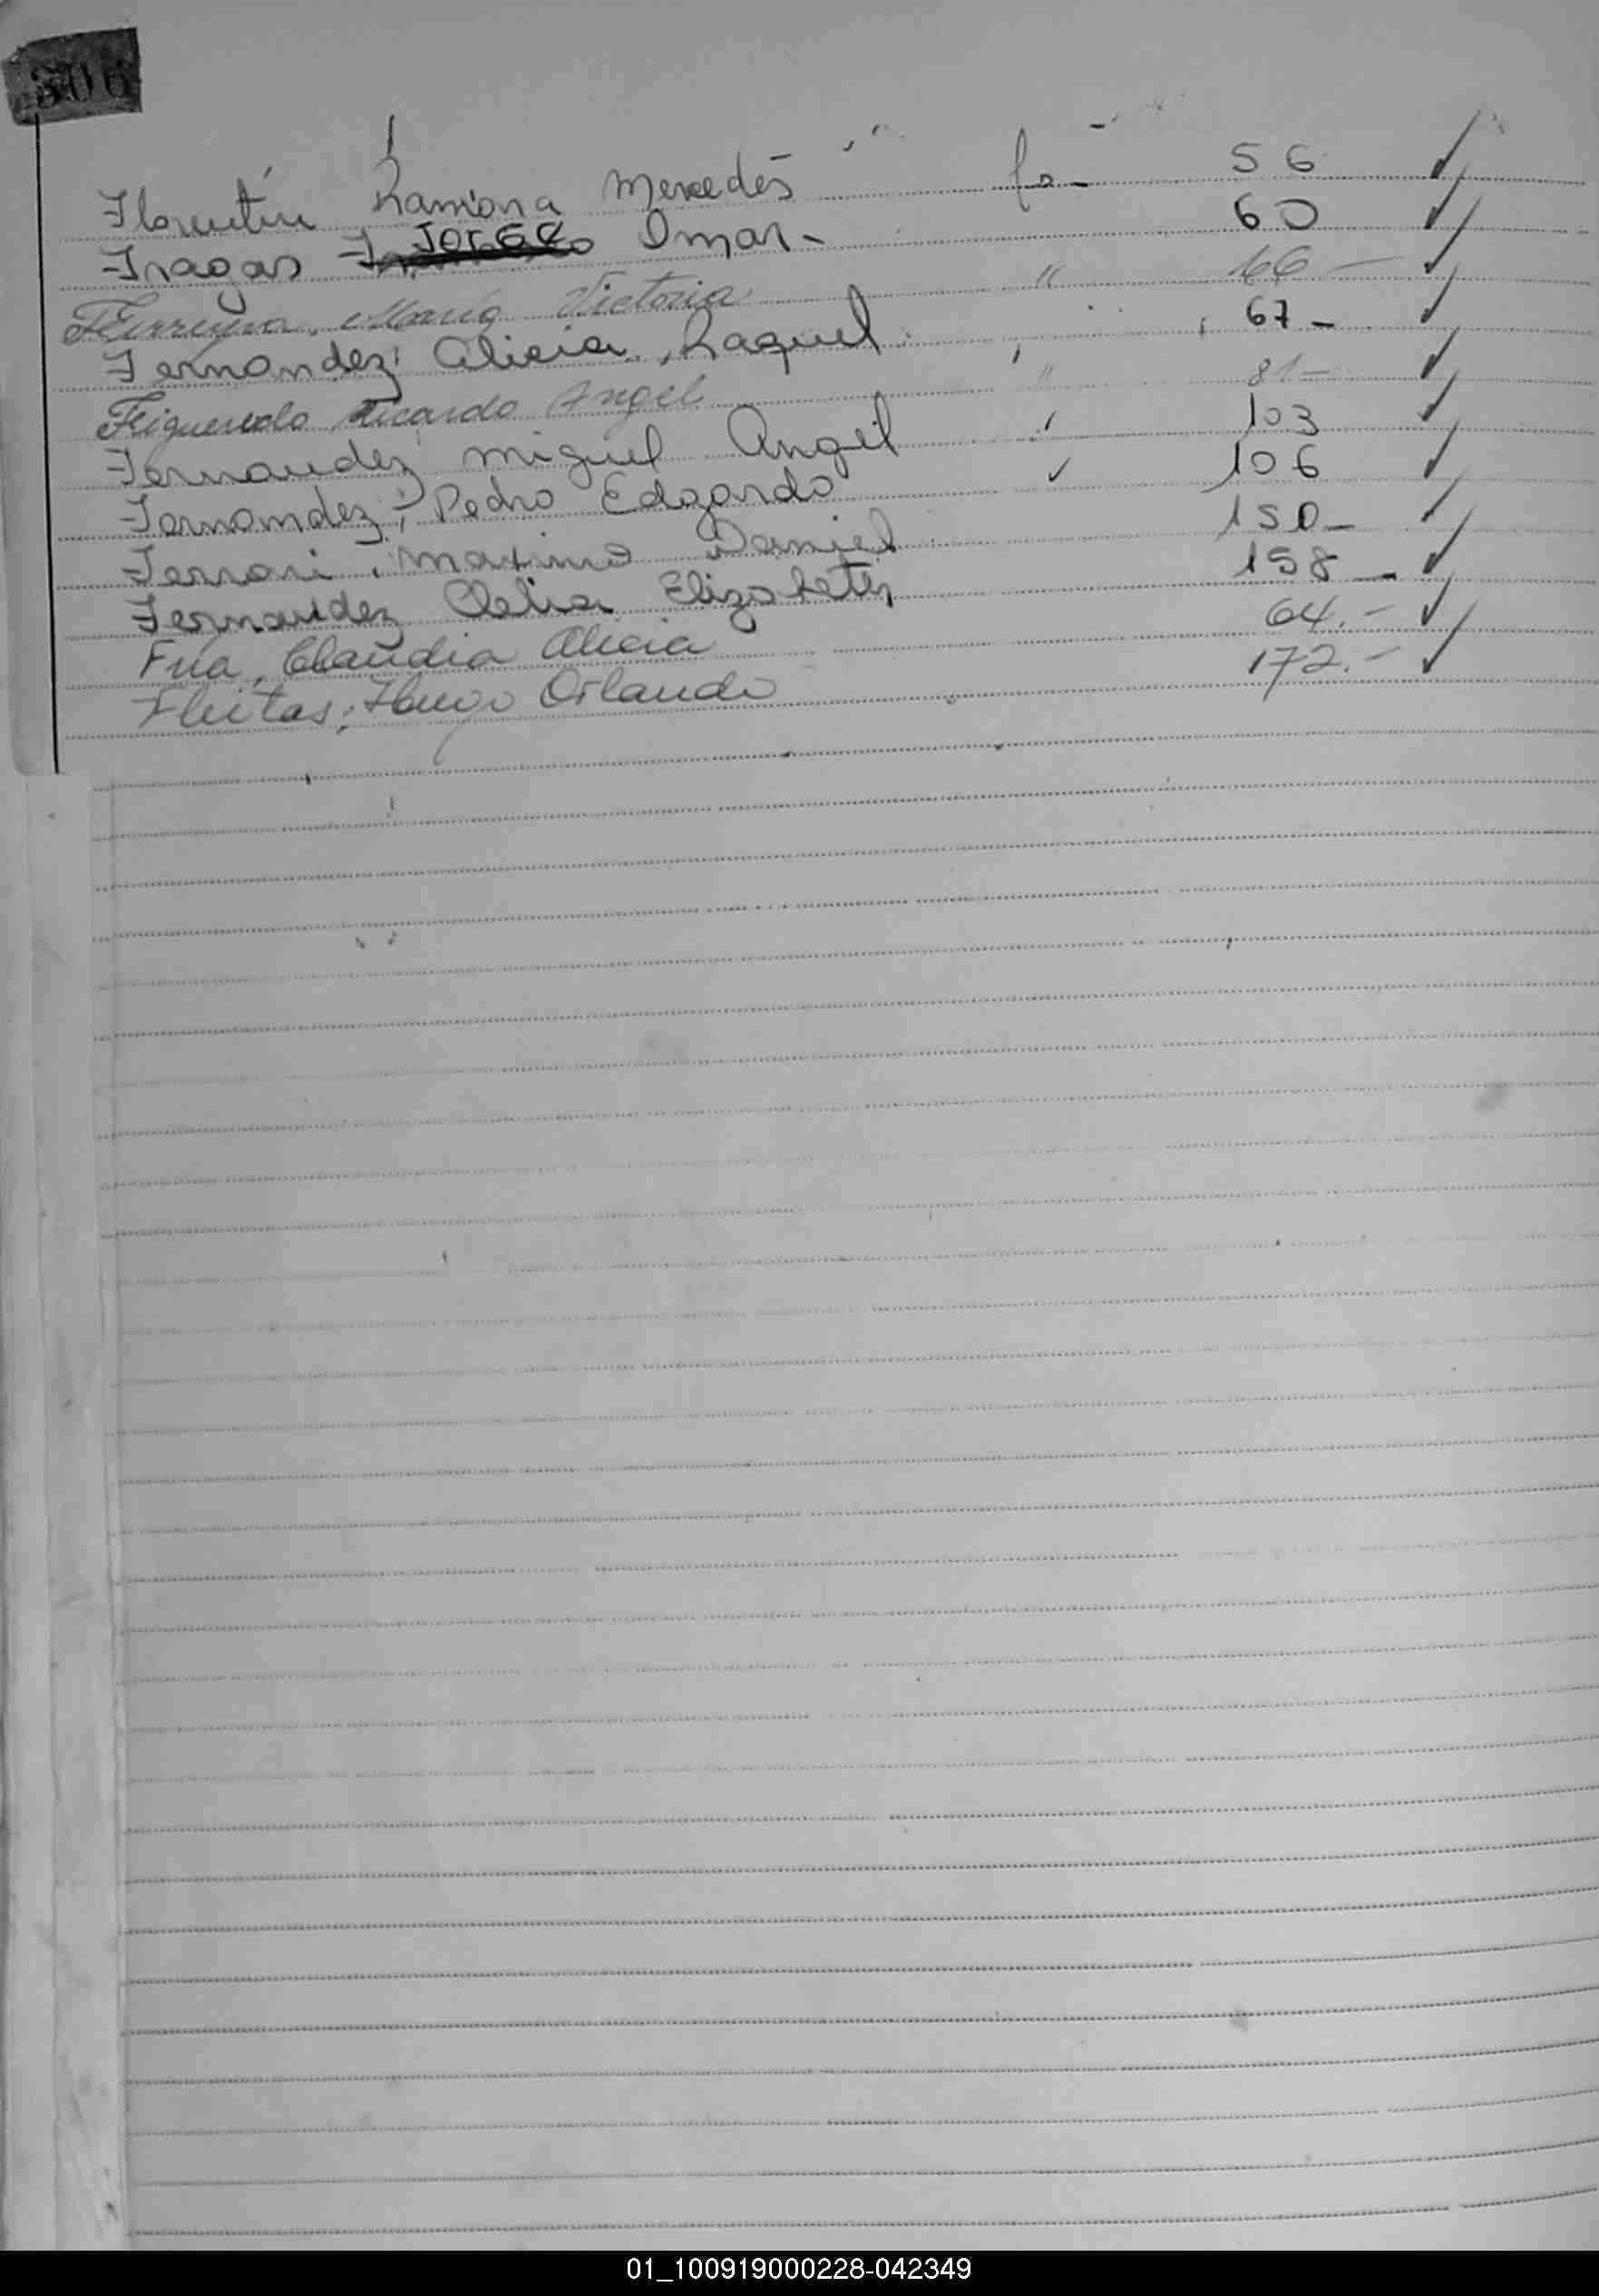 306
Florentín Ramona Mercedes fo- 56 ✓
Fragas Jorge Omar - 60 ✓
Ferreyra, María Victoria " 66 - ✓
Fernandez, Alicia, Raquel , , 67 - ✓
Figueredo Ricardo Angel " 81 - ✓
Fernandez Miguel Angel ' 103 ✓
Fernandez, Pedro Edgardo ✓ 106 ✓
Ferrari, Maximo Daniel 150 - ✓
Fernandez Elizabeth 158 - ✓
Fria, Claudia Alicia 64. - ✓
Fleitas, Hugo Orlando 172. - ✓
01_100919000228-042349